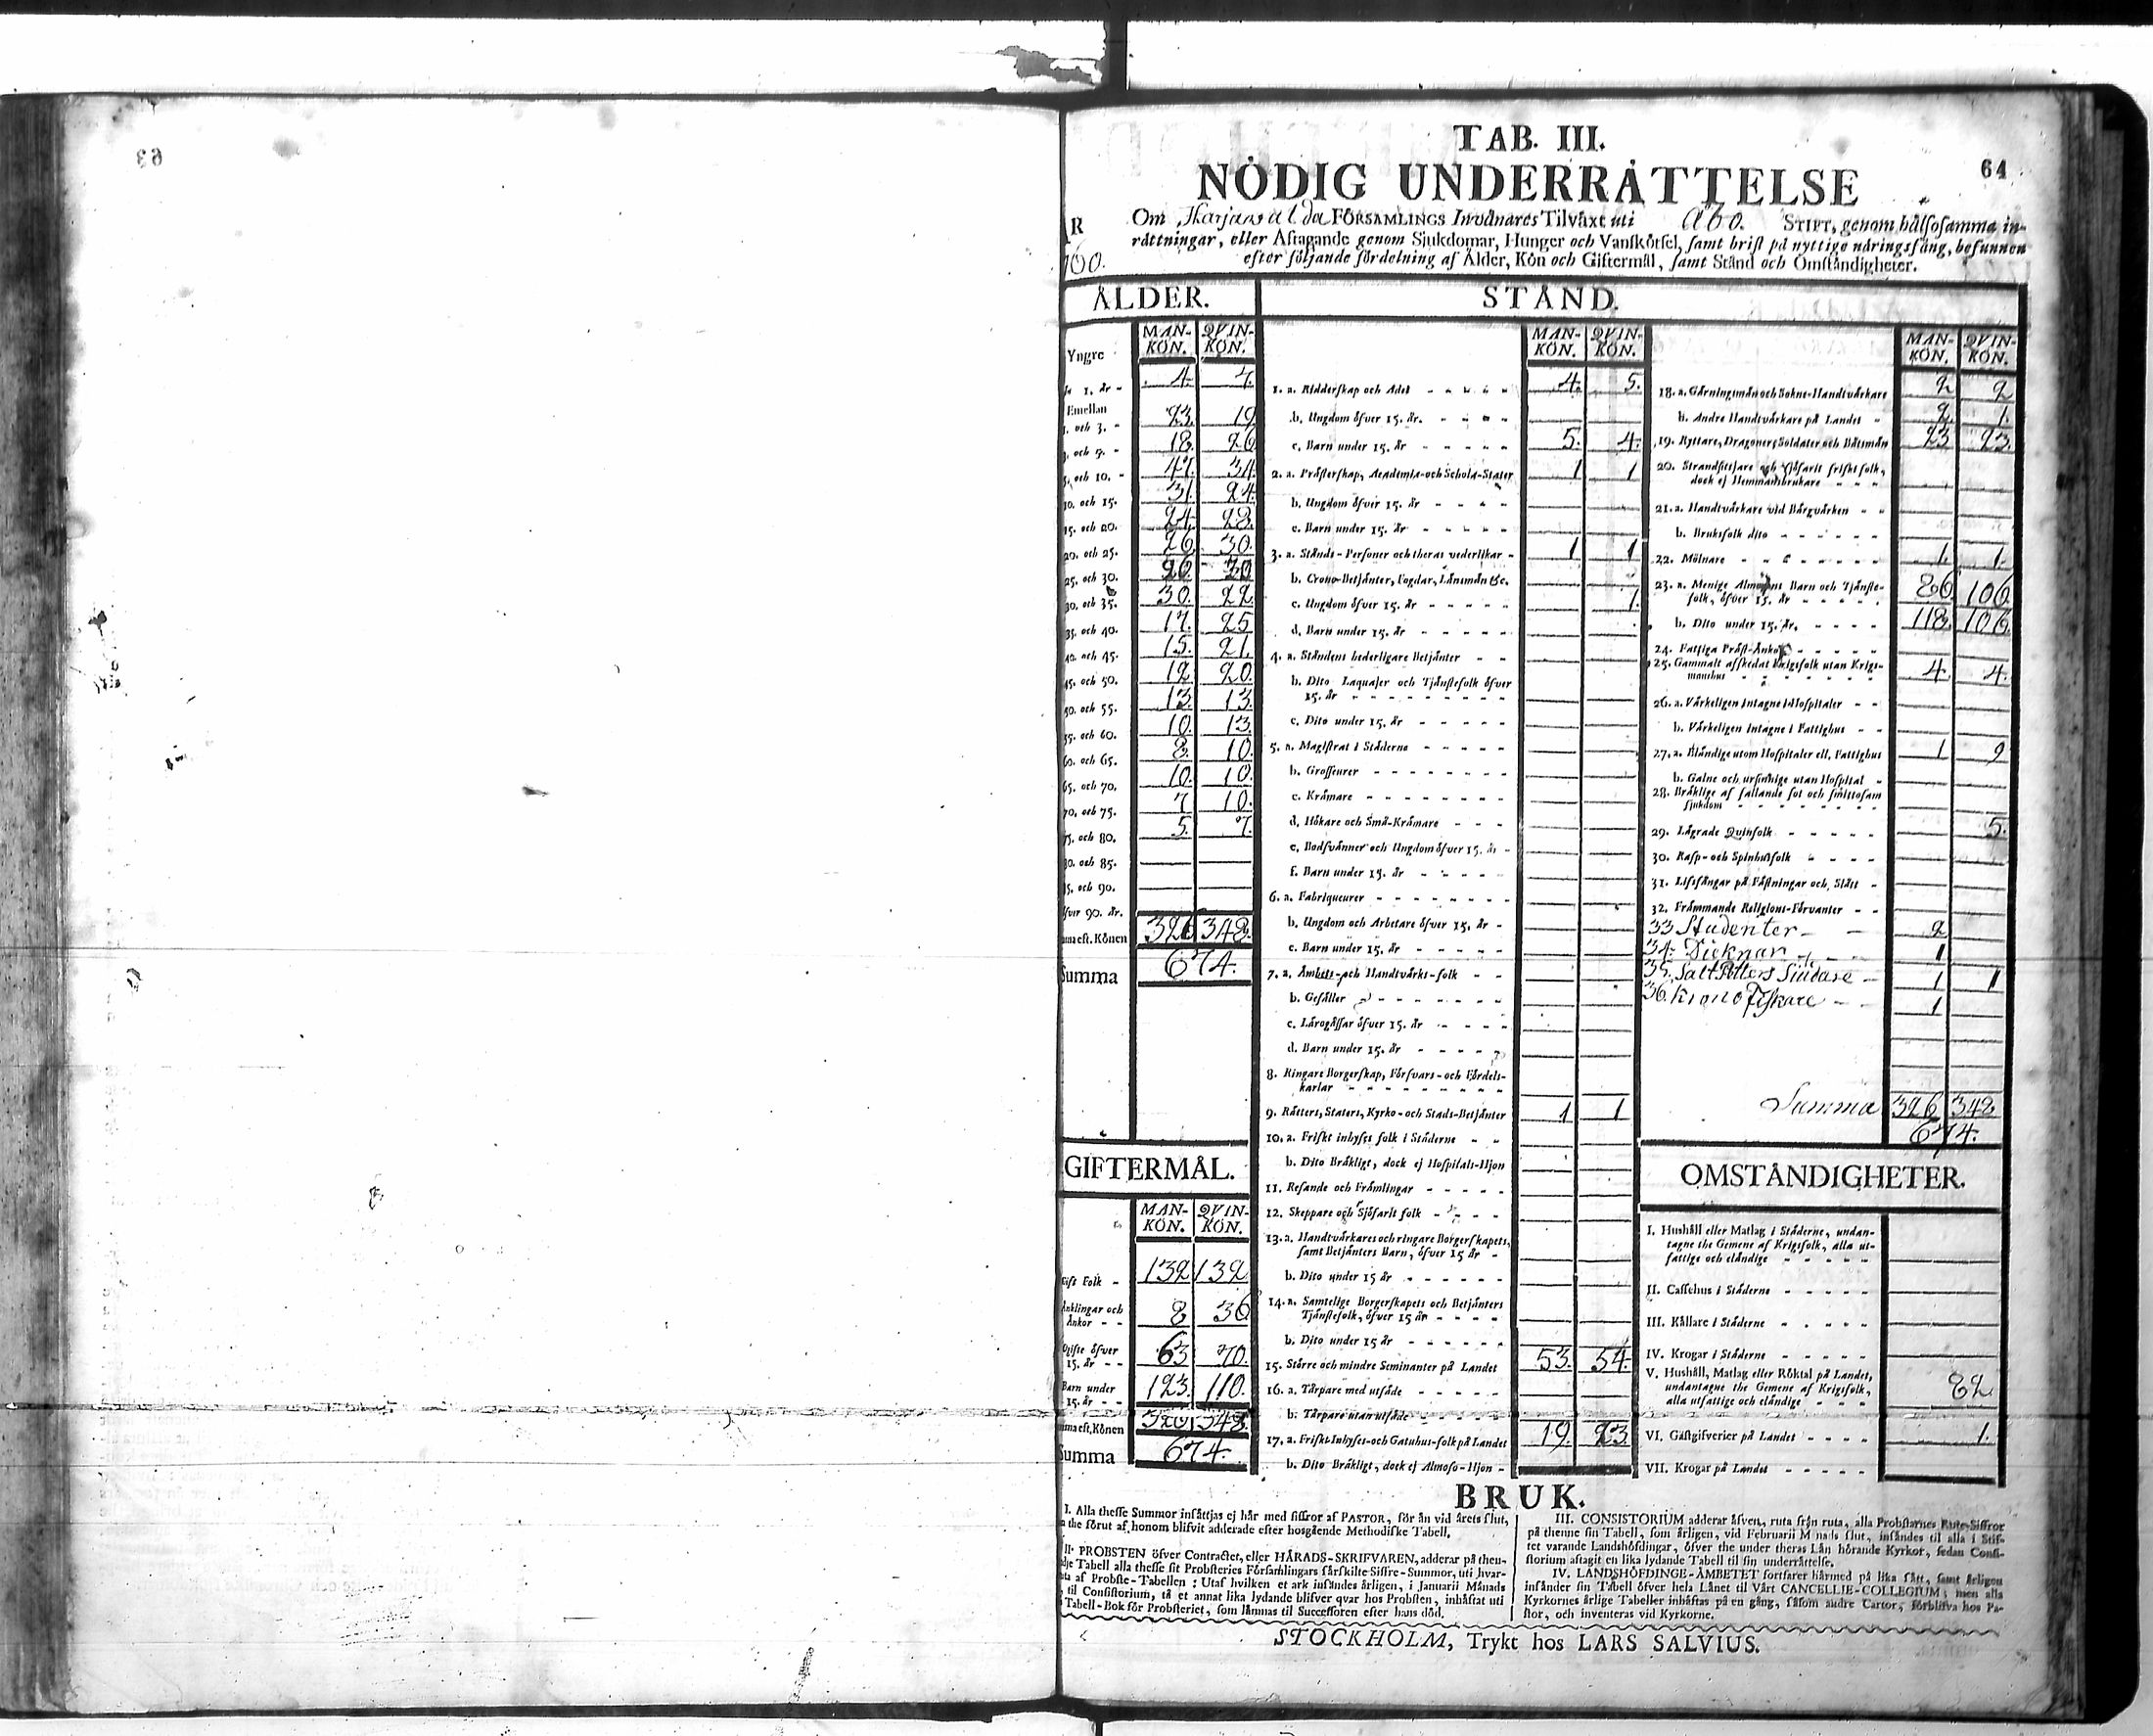 63
64
TAB. III.
NÖDIG UNDERRÅTTELSE
ÅR
1760.
Om Karjans al da FÖRSAMLINGS Invånares Tilväxt uti Åbo. STIFT, genom hälsosamma in-
råttningar, eller Aftagande genom Sjukdomar, Hunger och Vanskötsel, samt brist på nyttige näringsfång, befunnen
efter följande fördelning af Ålder, Kön och Giftermål, samt Stånd och Omständigheter.
ÅLDER.
MAN-KÖN. QVIN-KÖN.
Yngre
än 1. år - 4. 7.
Emellan
1. och 3. - 23. 19.
3. och 5. - 18. 26
5. och 10. - 47. 34.
10. och 15. 31. 24.
15. och 20. 24. 28.
20. och 25. 26. 30.
25. och 30. 26. 30
30. och 35. 30. 22
35. och 40. 17. 25
40. och 45. 15. 21.
45. och 50. 12. 20.
50. och 55. 13. 13.
55. och 60. 10. 13.
60. och 65. 8. 10.
65. och 70. 10. 10.
70. och 75. 7 10.
75. och 80. 5. 7.
80. och 85.
85. och 90.
öfver 90. år.
Summa eft. Könen 326 348.
Summa 674.
GIFTERMÅL.
MAN-KÖN. QVIN-KÖN.
Gift Folk - 132 132
Änklingar och
Änkor - - 8 36
Ogifte öfver
15. år - - 63 70.
Barn under
15. år - - 123. 110.
Summa eft. Könen 326. 348.
Summa 674.
STÅND.
MAN-KÖN. QVIN-KÖN.
1. a. Ridderskap och Adel - - - - - 4. 5.
b. Ungdom öfver 15. år. - - - -
c. Barn under 15. år - - - - - 5. 4.
2. a. Prästerskap, Academia-och Schola-Stater 1 1
b. Ungdom öfver 15. år - - - -
c. Barn under 15. år - - - - -
3. a. Stånds-Personer och theras vederlikar - 1 1
b. Crono-Betjänter, Fogdar, Länsmän &c.
c. Ungdom öfver 15. år - - - - - 1.
d. Barn under 15. år - - - - -
4. a. Ståndens hederligare Betjänter - -
b. Dito Laquajer och Tjänstefolk öfver
15. år - - - - - - - -
c. Dito under 15. år - - - - -
5. a. Magistrat i Städerne - - - - -
b. Grosseurer - - - - - - - -
c. Krämare - - - - - - - -
d. Hökare och Små-Krämare - - -
e. Bodsvänner och Ungdom öfver 15. år -
f. Barn under 15. år - - - - -
6. a. Fabriqueurer - - - - - - -
b. Ungdom och Arbetare öfver 15. år -
c. Barn under 15. år - - - - -
7. a. Ämbets-och Handtvärks-folk - -
b. Gesäller - - - - - - - -
c. Lärogåssar öfver 15. år - - - -
d. Barn under 15. år - - - - -
8. Ringare Borgerskap, Försvars-och Fördels-
karlar - - - - - - - - -
9. Rätters, Staters, Kyrko-och Stads-Betjänter 1 1
10. a. Friskt inhyses folk i Städerne - -
b. Dito Bräkligt, dock ej Hospitals-Hjon
11. Resande och Främlingar - - - - -
12. Skeppare och Sjöfarit folk - - - -
13. a. Handtvärkares och ringare Borgerskapets,
samt Betjänters Barn, öfver 15 år -
b. Dito under 15 år - - - - - -
14. a. Samtelige Borgerskapets och Betjänters
Tjänstefolk, öfver 15 år - - - -
b. Dito under 15 år - - - - - -
15. Större och mindre Seminanter på Landet 53. 54.
16. a. Tårpare med utsäde - - - - -
b. Tårpare utan utsäde - - - - -
17. a. Friskt Inhyses-och Gatuhus-folk på Landet 19. 23.
b. Dito Bräkligt, dock ej Almoso-Hjon -
MAN-KÖN. QVIN-KÖN.
18. a. Gärningsmän och Sokne-Handtvärkare 2 2
b. Andre Handtvärkare på Landet - 2. 1.
19. Ryttare, Dragoner, Soldater och Båtsmän 23 23.
20. Strandsittjare och Sjöfarit friskt folk,
dock ej Hemmansbrukare - - -
21. a. Handtvärkare vid Bärgvärken - -
b. Bruksfolk dito - - - - - -
22. Mölnare - - - - - - - - 1. 1.
23. a. Menige Almogens Barn och Tjänste-
folk, öfver 15. år - - - - - 86 106.
b. Dito under 15. år. - - - - 118. 106.
24. Fattiga Präst-Änkor - - - - -
25. Gammalt afskedat Krigsfolk utan Krigs-
manshus - - - - - - - 4. 4.
26. a. Värkeligen intagne i Hospitaler - -
b. Värkeligen intagne i Fattighus - -
27. a. Eländige utom Hospitaler ell. Fattighus 1 9
b. Galne och ursinnige utan Hospital -
28. Bräklige af fallande sot och smittosam
sjukdom - - - - - - -
29. Lägrade Qvinfolk - - - - - 5.
30. Rasp-och Spinhusfolk - - - -
31. Lifsfångar på Fästningar och Slått -
32. Främmande Religions-Förvanter - -
33 Studenter - - 2
34. Dieknar - - 1
35. Salt Petters Siudare - 1 1
36. Krono Fiskare - - 1
Summa 326 348
674.
OMSTÅNDIGHETER.
I. Hushåll eller Matlag i Städerne, undan-
tagne the Gemene af Krigsfolk, alla ut-
fattige och eländige - - - - -
II. Caffehus i Städerne - - - - -
III. Källare i Städerne - - - - -
IV. Krogar i Städerne - - - - -
V. Hushåll, Matlag eller Röktal på Landet,
undantagne the Gemene af Krigsfolk,
alla utfattige och eländige - - - 82
VI. Gästgifverier på Landet - - - - 1.
VII. Krogar på Landet - - - - -
BRUK.
I. Alla thesse Summor insättjas ej här med siffror af PASTOR, för än vid årets slut,
the förut af honom blifvit adderade efter hosgående Methodiske Tabell.
II. PROBSTEN öfver Contractet, eller HÄRADS-SKRIFVAREN, adderar på then-
Tabell alla thesse sit Probsteries Församlingars särskilte Siffre-Summor, uti hvar-
af Probste-Tabellen: Utaf hvilken et ark insändes årligen, i Januarii Månads
til Consistorium, tå et annat lika lydande blifver qvar hos Probsten, inhäftat uti
Tabell-Bok för Probsteriet, som lämnas til Successoren efter hans död.
III. CONSISTORIUM adderar äfven, ruta från ruta, alla Probstarnes Rute-Siffror
på thenne sin Tabell, som årligen, vid Februarii Månads slut, insändes til alla i Stif-
tet varande Landshöfdingar, öfver the under theras Län hörande Kyrkor, sedan Consi-
storium aftagit en lika lydande Tabell til sin underrättelse.
IV. LANDSHÖFDINGE-ÄMBETET fortfarer härmed på lika sätt, samt årligen
insänder sin Tabell öfver hela Länet til Vårt CANCELLIE-COLLEGIUM; men alla
Kyrkornes årlige Tabeller inhäftas på en gång, såsom andre Cartor, förblifva hos Pa-
stor, och inventeras vid Kyrkorne.
STOCKHOLM, Trykt hos LARS SALVIUS.